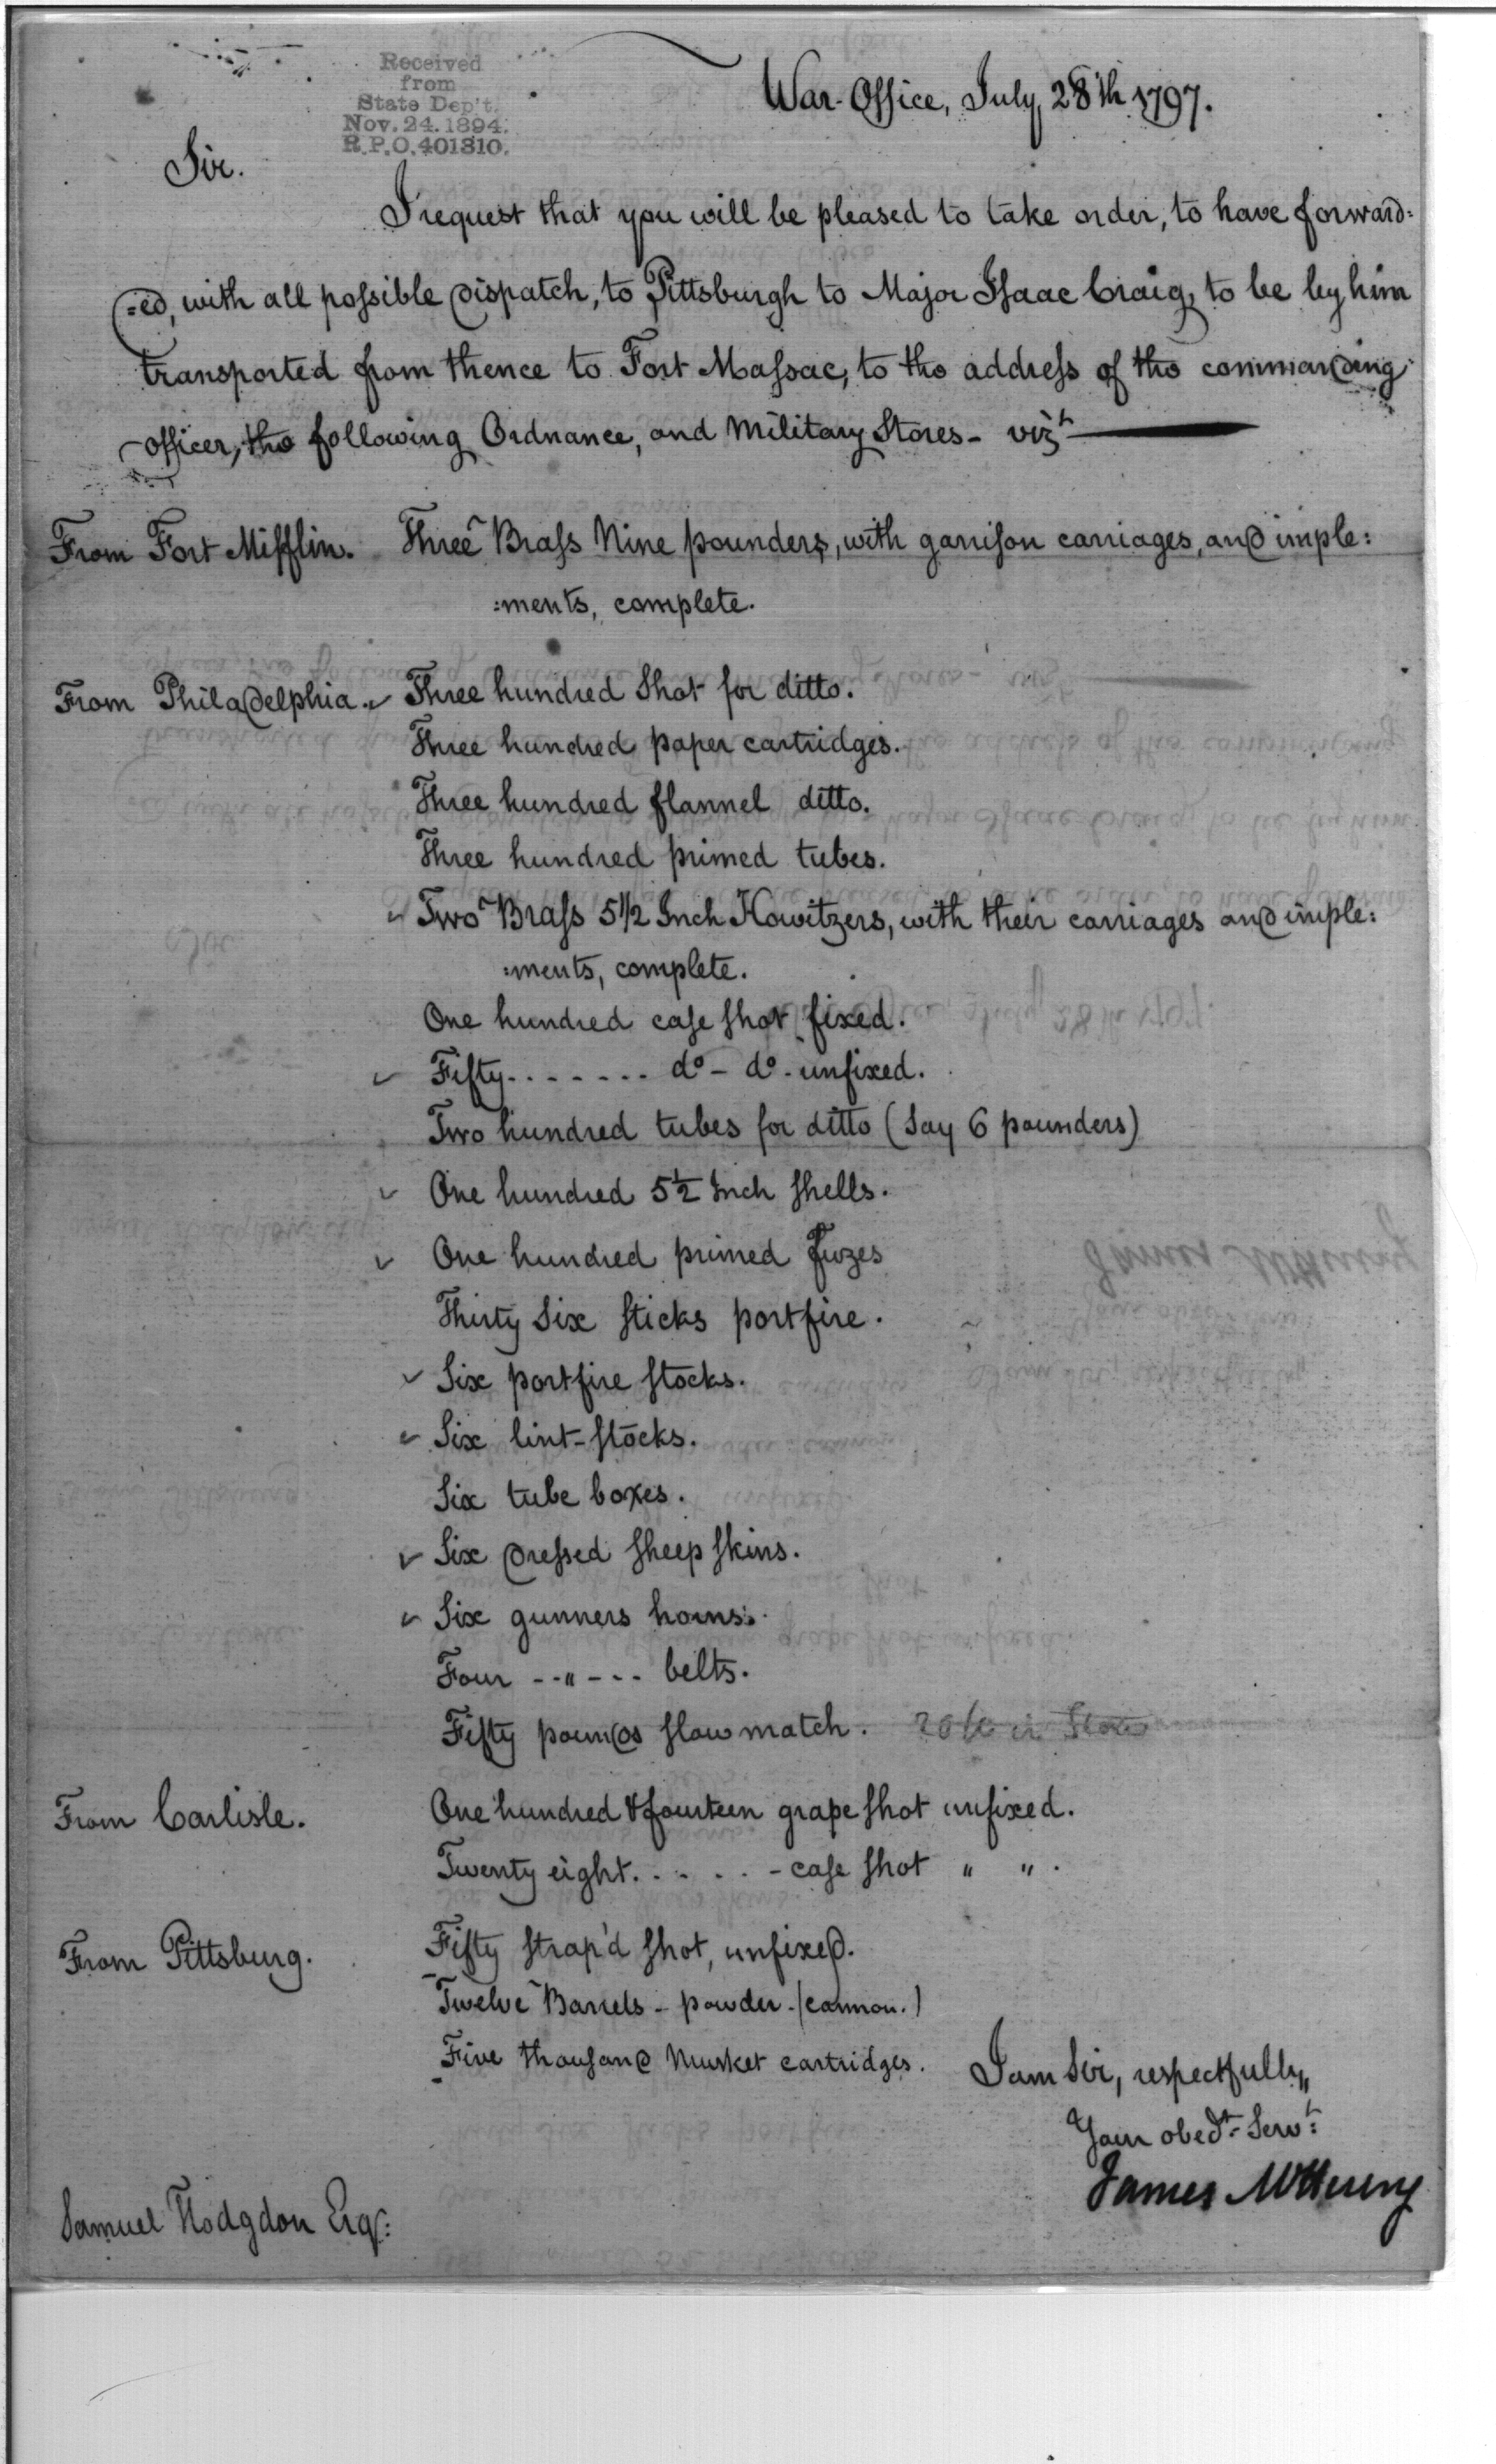 Received
from
State Dep't.
Nov. 24. 1894.
R.P.O. 401310.
War-Office, July 28th 1797.
Sir.
I request that you will be pleased to take order, to have forward:
:ed, with all possible dispatch, to Pittsburgh to Major Isaac Craig, to be by him
transported from thence to Fort Massac, to the address of the commanding
officer, the following Ordnance, and Military Stores - vizt
From Fort Mifflin. Three Brass Nine pounders, with garrison carriages, and imple:
:ments, complete.
From Philadelphia. Three hundred Shot for ditto.
Three hundred paper cartridges.
Three hundred flannel ditto.
Three hundred primed tubes.
Two Brass 5 1/2 Inch Howitzers, with their carriages and imple:
:ments, complete.
One hundred case shot fixed.
✓ Fifty . . . . . . . do - do - unfixed.
Two hundred tubes for ditto (Say 6 pounders)
✓ One hundred 5 1/2 Inch shells.
✓ One hundred primed Fuzes
Thirty Six sticks portfire.
✓ Six portfire stocks.
✓ Six lint-stocks.
Six tube boxes.
✓ Six dressed sheep skins.
✓ Six gunners horns.
Four - - " - - - belts.
Fifty pounds slow match. 20 lb in Store
From Carlisle. One hundred & fourteen grape shot unfixed.
Twenty eight . . . . . - case shot " " .
From Pittsburg. Fifty strap'd shot, unfixed.
Twelve Barrels - powder - (cannon.)
Five thousand Musket cartridges.
I am Sir, respectfully,
Your obedt. Servt:
James McHenry
Samuel Hodgdon Esq: